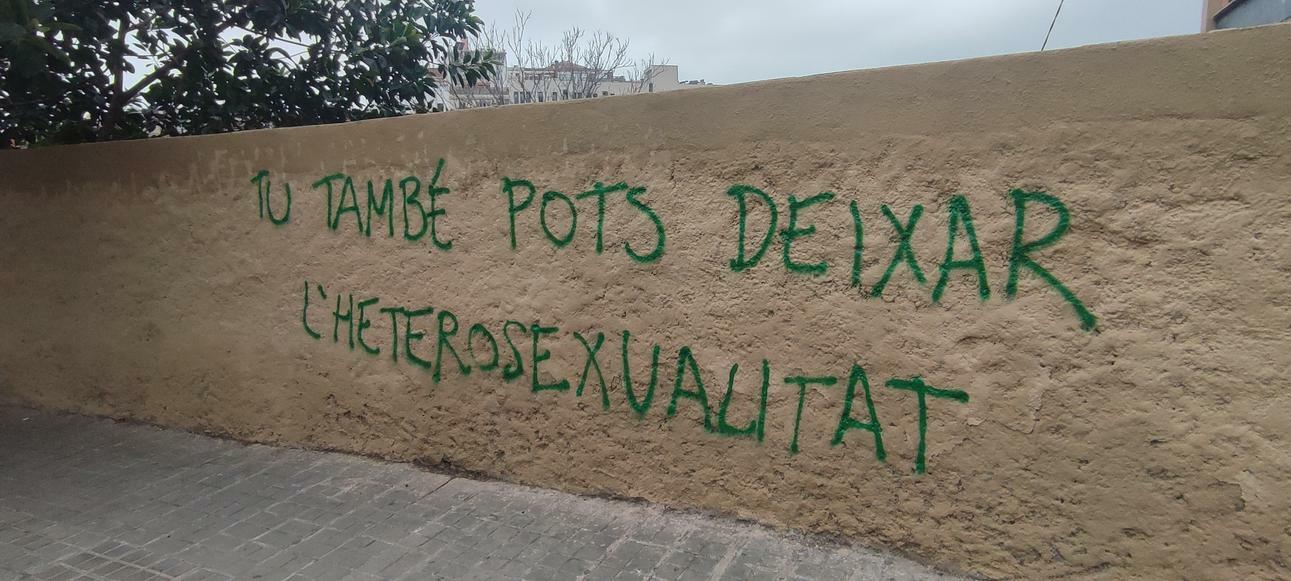 TU TAMBÉ POTS DEIXAR
L'HETEROSEXUALITAT